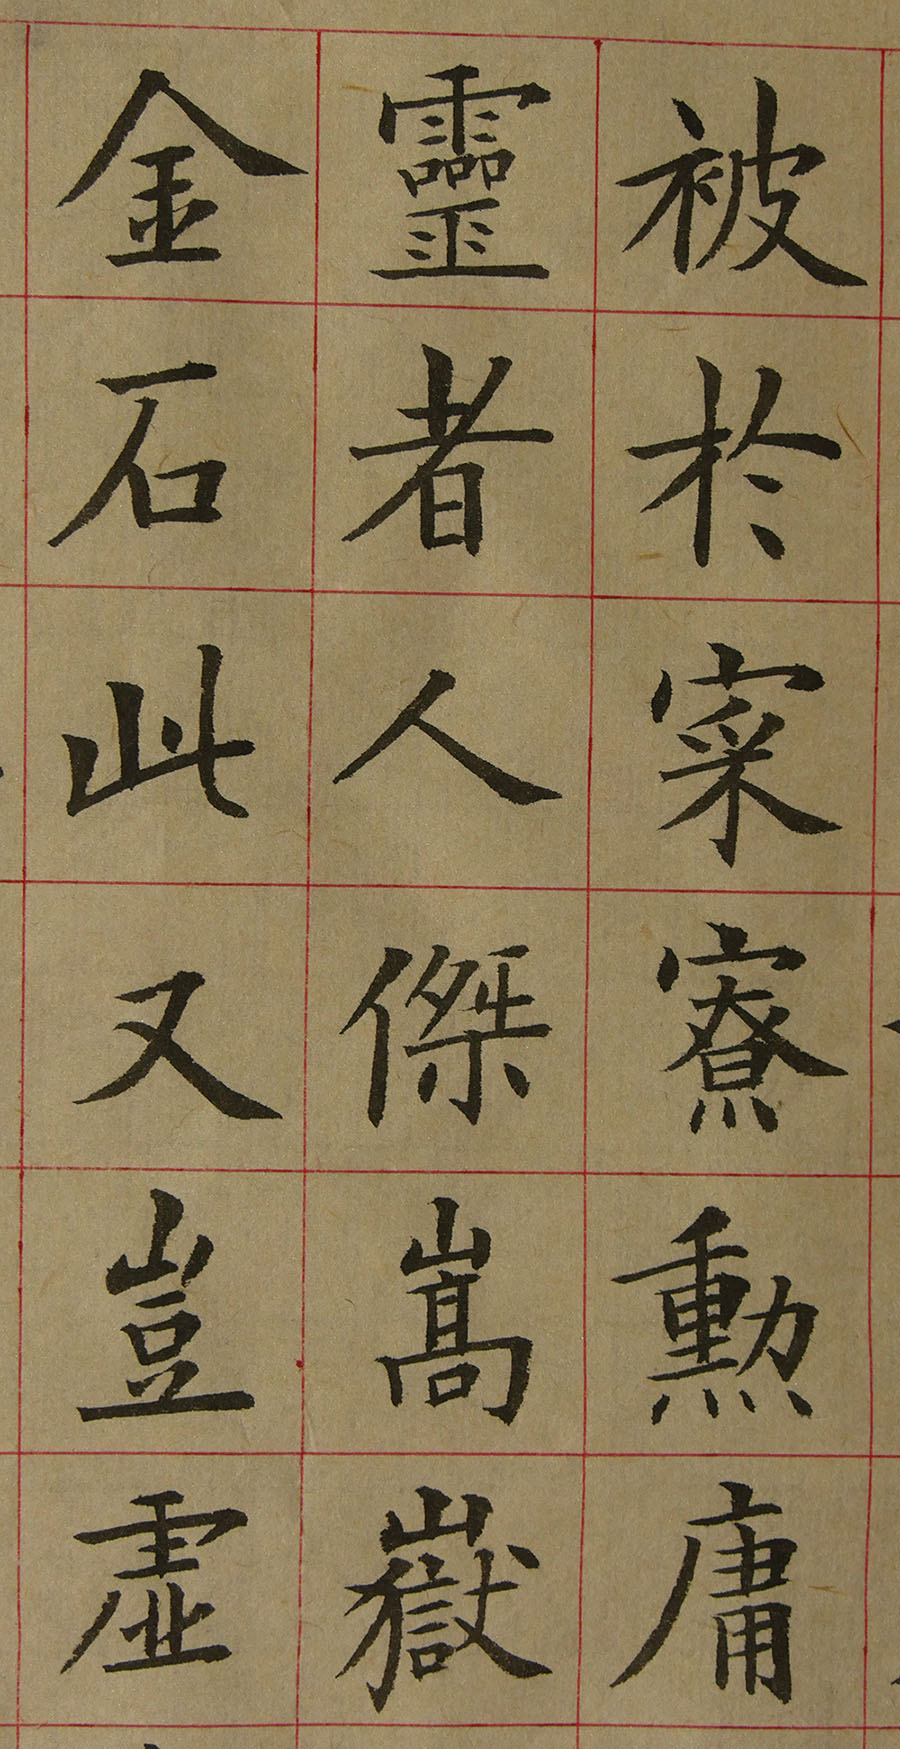 被於寀寮勳庸
靈者人傑嵩嶽
金石此又豈虛